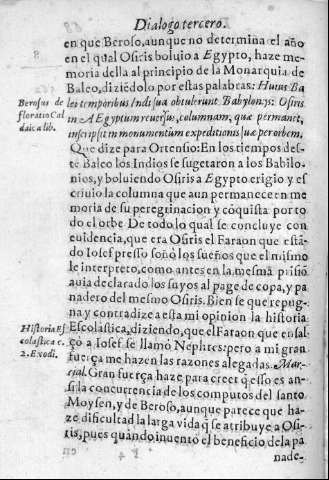 Dialogo tercero.
en que Beroso, aunque no determina el año
en el qual Osiris boluio a Egypto, haze me-
moria della al principio de la Monarquia de
Baleo, diziẽdolo por estas palabras: Huius Ba
lei temporibus Indi sua obtulerunt Babylonys: Osiris
in Ægyptum reuersus, columnam, quæ permanet,
inscripsit in monumentum expeditionis suæ per orbem,
Que dize para Ortensio: En los tiempos des-
te Baleo los Indios se sugetaron a los Babilo-
nios, y boluiendo Osiris a Egypto erigio y es
criuio la columna que aun permanece en me
moria de su peregrinacion y cõquista por to
do el orbe De todo lo qual se concluye con
euidencia, que era Osiris el Faraon que estã-
do Iosef presso soñò los sueños que el mismo
le interpretò, como antes en la mesma prisiõ
auia declarado los suyos al page de copa, y pa
nadero del mesmo Osiris. Bien se que repug-
na y contradize a esta mi opinion la historia
Escolastica, diziendo, que el Faraon que ensal
çò a Iosef se llamò Nephres: pero a mi gran
fuerça me hazen las razones alegadas. Mar-
cial. Gran fuerça haze para creer q̃ esso es an-
si la concurrencia de los computos del santo
Moysen, y de Beroso, aunque parece que ha-
ze dificultad la larga vida q̃ se atribuye a Osi-
ris, pues quando inuentò el beneficio dela pa
nade-
Berosus de
floratio Cal
daica lib.
Historia Es
colastica c.
2. Exodi.